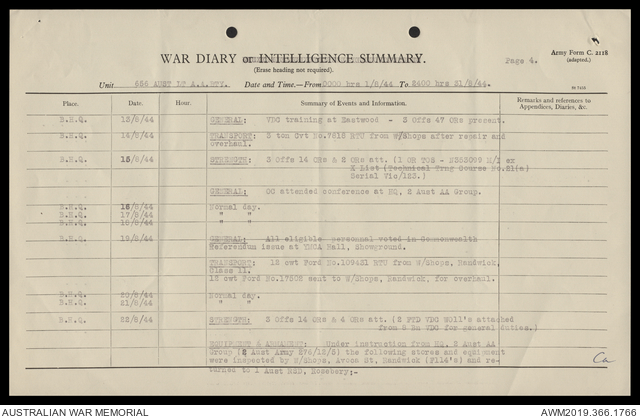 Army Form C. 2118
(adapted.)
WAR DIARY or INTELLIGENCE SUMMARY.
Page 4.
(Erase heading not required).
Unit 656 AUST LT A.A.BTY. Date and Time.—From 0000 hrs 1/8/44 To 2400 hrs 31/8/44.
Place. Date. Hour. Summary of Events and Information. Remarks and references to Appendices, Diaries, &c.
B.H.Q. 13/8/44 GENERAL: VDC training at Eastwood - 3 Offs 47 ORs present.
B.H.Q. 14/8/44 TRANSPORT: 3 ton Cvt No.7618 RTU from W/Shops after repair and
overhaul.
B.H.Q. 15/8/44 STRENGTH: 3 Offs 14 ORs & 2 ORs att. (1 OR TOS - N353089 M/I ex
X List (Technical Trng Course No.21(a)
Serial Vic/123.)
GENERAL: OC attended conference at HQ, 2 Aust AA Group.
B.H.Q. 16/8/44 Normal day.
B.H.Q. 17/8/44 " "
B.H.Q. 18/8/44 " "
B.H.Q. 19/8/44 GENERAL: All eligible personnel voted in Commonwealth
Referendum issue at YMCA Hall, Showground.
TRANSPORT: 12 cwt Ford No.109431 RTU from W/Shops, Randwick,
Class 11.
12 cwt Ford No.17508 sent to W/Shops, Randwick, for overhaul.
B.H.Q. 20/8/44 Normal day.
B.H.Q. 21/8/44 " "
B.H.Q. 22/8/44 STRENGTH: 3 Offs 14 ORs & 4 ORs att. (2 FTD VDC WOll's attached
from 8 Bn VDC for general duties.)
EQUIPMENT & ARMAMENT: Under instruction from HQ, 2 Aust AA
Group (2 Aust Army E76/12/3) the following stores and equipment
were inspected by W/Shops, Avoca St, Randwick (F114's) and re-
turned to 1 Aust BSD, Rosebery:-
AUSTRALIAN WAR MEMORIAL
AWM2019.366.1766